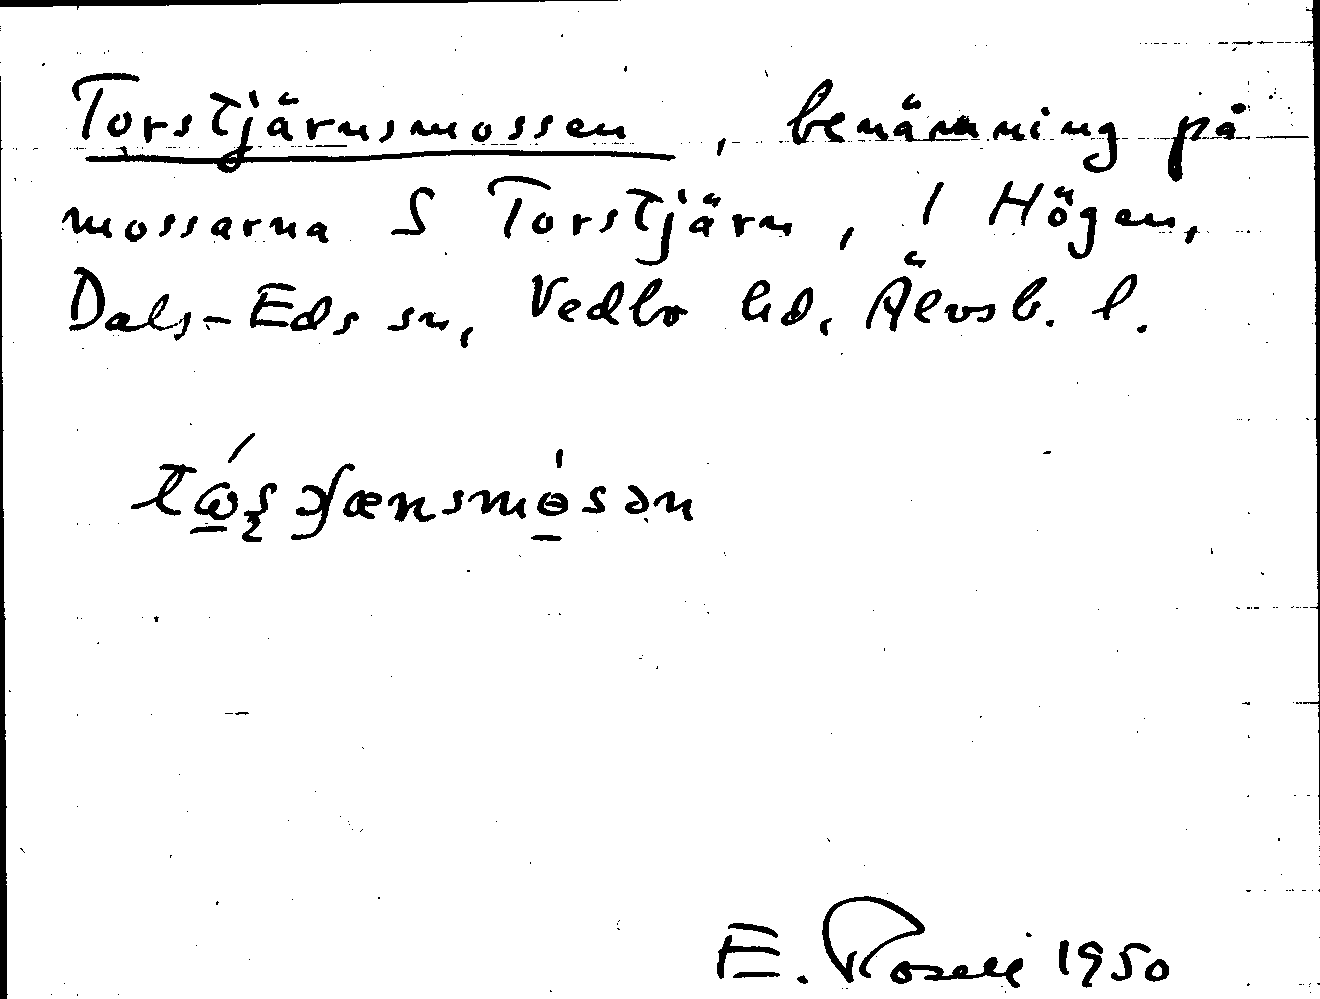 Torstjärnsmossen, benämning på
mossarna S Torstjärn, 1 Högen,
Dals-Eds sn, Vedbo hd, Älvsb. l.
E. Rosell 1950